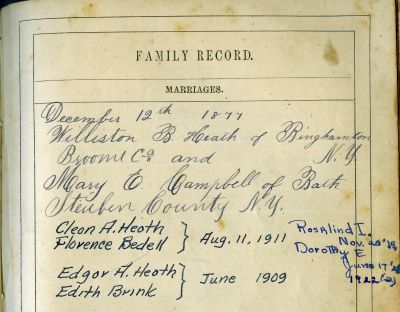 FAMILY RECORD.
MARRIAGES.
December 12th 1877
Williston B Heath of Binghamton
Broome Co and N.Y.
Mary E. Campbell of Bath
Steuben County N.Y.
Cleon A. Heath
Florence Bedell } Aug. 11, 1911
Rosalind I.
Nov. 20
Dorothy E.
June 17
1922
Edgar A. Heath
Edith Brink } June 1909